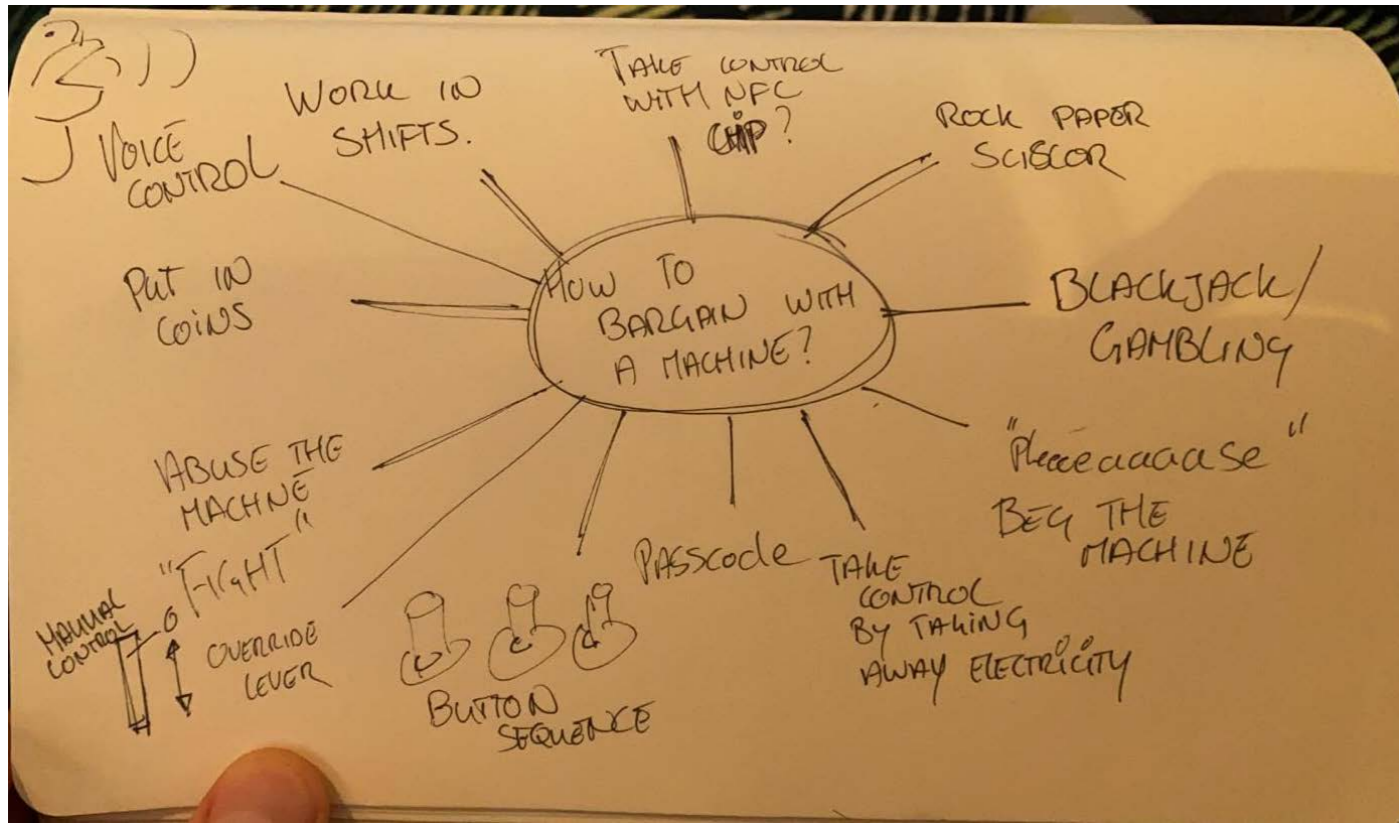 HOW TO
BARGAIN WITH
A MACHINE?
VOICE
CONTROL
WORK IN
SHIFTS.
TAKE CONTROL
WITH NFC
CHIP?
ROCK PAPER
SCISCOR
BLACKJACK/
GAMBLING
"Pleeeaaaase"
BEG THE
MACHINE
TAKE
CONTROL
BY TAKING
AWAY ELECTRICITY
PASSCODE
BUTTON
SEQUENCE
OVERRIDE
LEVER
MANUAL
CONTROL
ABUSE THE
MACHNE
"FIGHT"
PUT IN
COINS